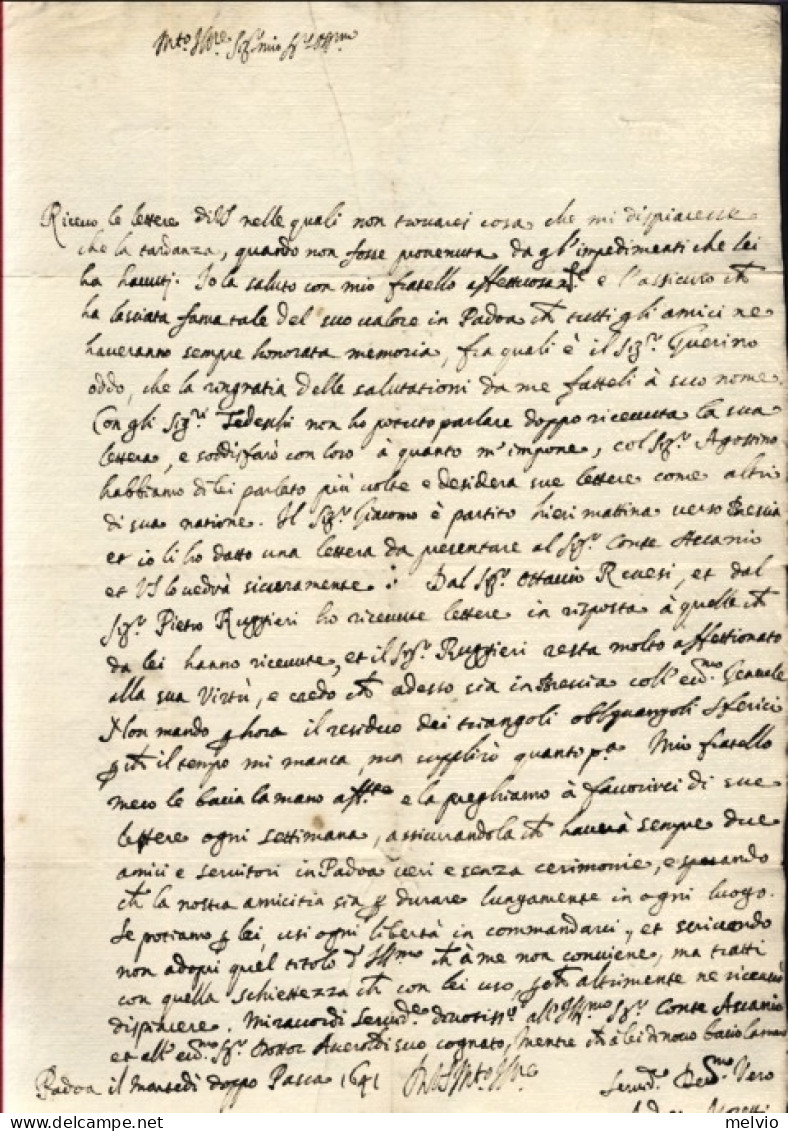 Mto Illre Sigr mio Sigr Ossmo
Ricevo le lettere di VS nelle quali non trovarei cosa che mi dispiacesse
che la tardanza, quando non fosse provenuta da gl'impedimenti che lei
ha havuti. Io la saluto con mio fratello affettuosamte e l'assicuro ch
ha lasciata fama tale del suo valore in Padoa ch tutti gli amici ne
haveranno sempre honorata memoria, fra quali è il Sigr. Guerino
oddo, che la ringratia delle salutationi da me fatteli à suo nome.
Con gli Sigri Tedeschi non ho potuto parlare doppo ricevuta la sua
lettera, e soddisfarò con loro à quanto m'impone, col Sigr. Agostino
habbiamo di lei parlato più volte e desidera sue lettere come altri
di sua natione. Il Sigr. Giacomo è partito hieri mattina verso Brescia
et io li ho datto una lettera da presentare al Sigr. Conte Ascanio
et VS lo vedrà sicuramente: Dal Sigr. Ottavio Revesi, et dal
Sigr. Pietro Ruggieri ho ricevute lettere in risposta à quelle ch
da lei hanno ricevute, et il Sigr. Ruggieri resta molto affettionato
alla sua Virtù, e credo ch adesso sia in Brescia coll' eccmo. Generale
Non mando p hora il residuo dei triangoli obliquangoli sferici
p ch il tempo mi manca, ma supplirò quanto pa. Mio fratello
meco le bacia la mano affte e la preghiamo à favorirci di sue
lettere ogni settimana, assicurandola ch haverà sempre due
amici e servitori in Padoa veri e senza cerimonie, e sperando
ch la nostra amicitia sia p durare lungamente in ogni luogo.
Se potiamo p lei, usi ogni libertà in commandarci, et scrivendo
non adopri quel titolo d'Illmo ch à me non conviene, ma tratti
con quella schiettezza ch con lei uso, altrimente ne ricevo
dispiacere. Mi raccordi all' Illmo Sigr. Conte Ascanio
et all' eccmo. Sigr. Dottor Averoldi suo cognato, mentre ch à lei di novo bacio la mano
Padoa il martedì doppo Pasca 1641 Di VS Mto Illre
Servre Vero
melvio